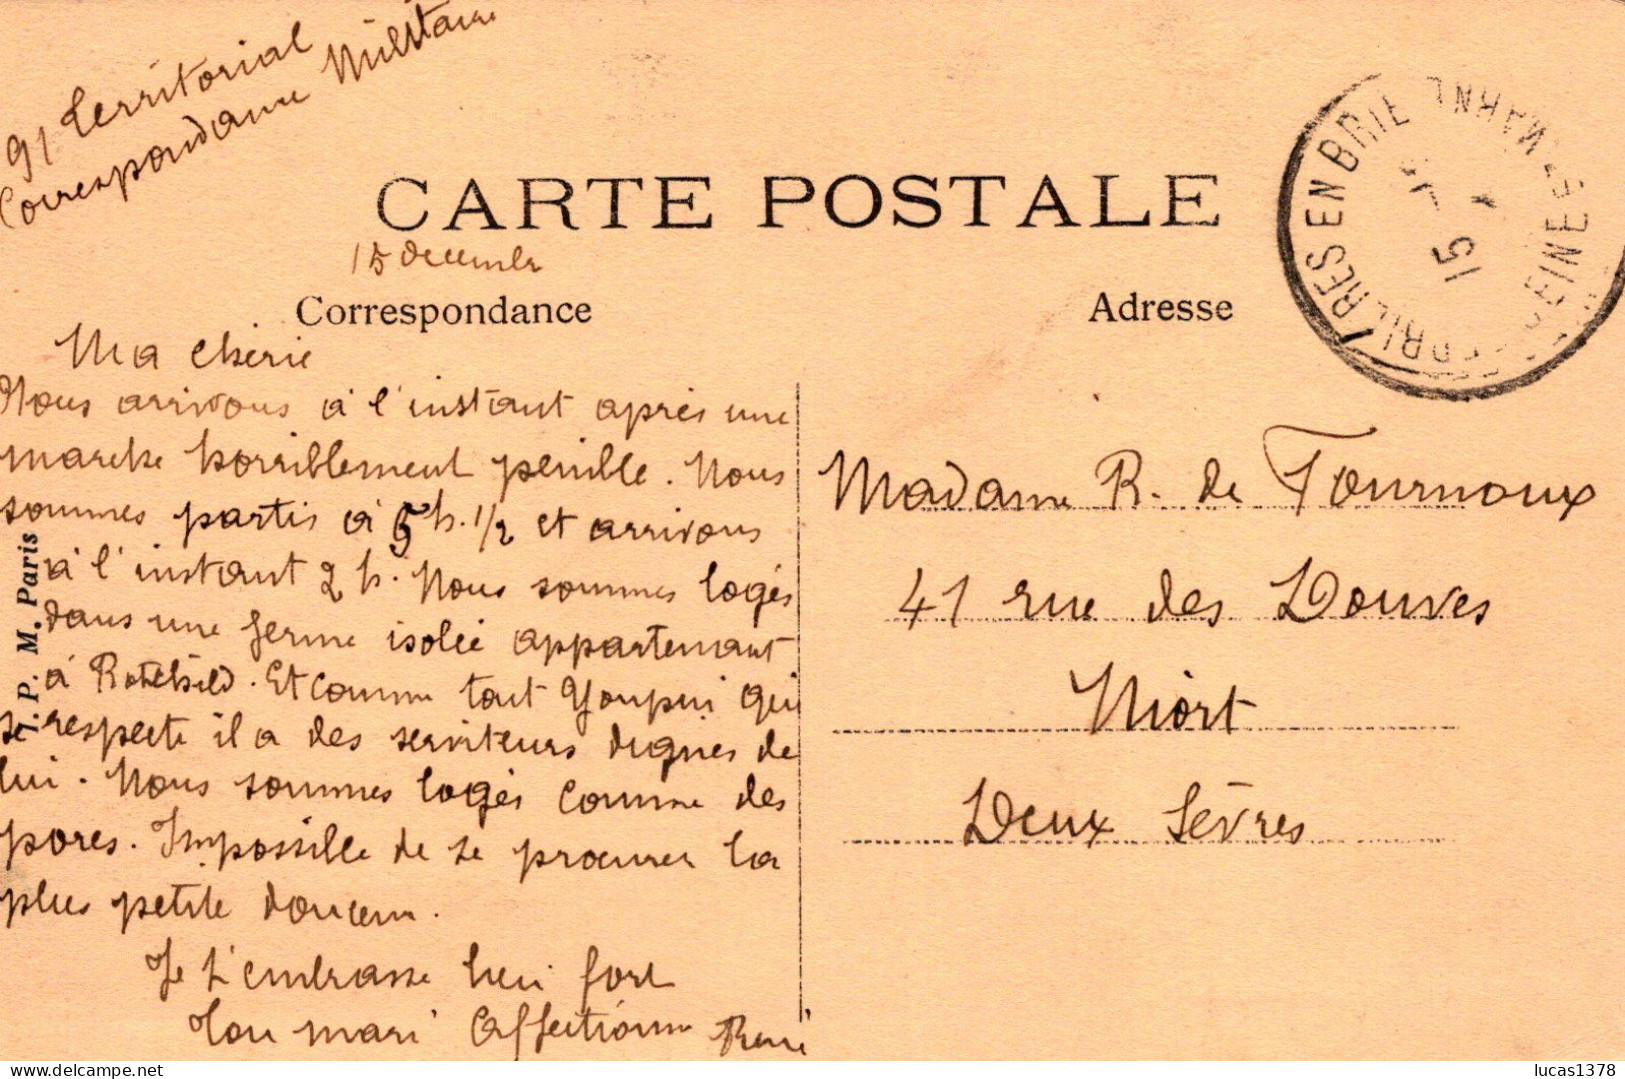 91 Territorial
Correspondance Militaire
CARTE POSTALE
15 decembre
Correspondance
Ma chérie
Nous arrivons à l'instant après une
marche horriblement penible. Nous
sommes partis à 5h. 1/2 et arrivons
à l'instant 2 h. Nous sommes logés
dans une ferme isolée appartenant
à Rotchild. Et comme tout Youpin qui
se respecte il a des serviteurs dignes de
lui. Nous sommes logés comme des
porcs. Impossible de se procurer la
plus petite douceur.
Je t'embrasse bien fort
Ton mari affectionné René
I. P. M. Paris
Adresse
FERRIÈRES EN BRIE
SEINE & MARNE
15
Madame R. de Fournoux
41 rue des Douves
Niort
Deux Sèvres
Delcampe.net
lucas1378